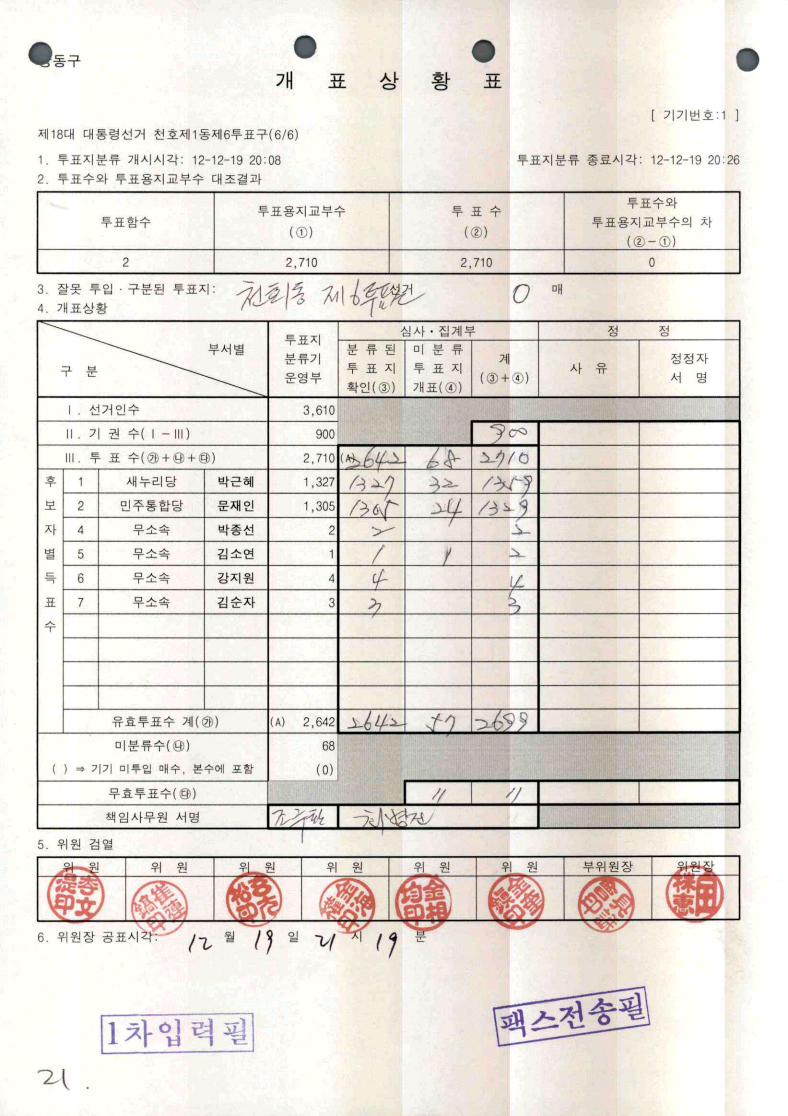 강동구
개 표 상 황 표
[ 기기번호:1 ]
제18대 대통령선거 천호제1동제6투표구(6/6)
1. 투표지분류 개시시각: 12-12-19 20:08 투표지분류 종료시각: 12-12-19 20:26
2. 투표수와 투표용지교부수 대조결과
투표함수 투표용지교부수 (①) 투 표 수 (②) 투표수와 투표용지교부수의 차 (②-①)
2 2,710 2,710 0
3. 잘못 투입·구분된 투표지: 선거 0 매
4. 개표상황
구 분 부서별 투표지 분류기 운영부 심사·집계부 정 정
분 류 된 투 표 지 확인(③) 미 분 류 투 표 지 개표(④) 계 (③+④) 사 유 정정자 서 명
Ⅰ. 선거인수 3,610
Ⅱ. 기 권 수(Ⅰ-Ⅲ) 900 900
Ⅲ. 투 표 수(㉮+㉯+㉰) 2,710 (A) 2642 68 2710
후보자별득표수
1 새누리당 박근혜 1,327 1327 32 1359
2 민주통합당 문재인 1,305 1305 24 1329
4 무소속 박종선 2 2 2
5 무소속 김소연 1 1 1 2
6 무소속 강지원 4 4 4
7 무소속 김순자 3 3 3
유효투표수 계(㉮) (A) 2,642 2642 57 2699
미분류수(㉯) 68
( ) ⇒ 기기 미투입 매수, 본수에 포함 (0)
무효투표수(㉰) 11 11
책임사무원 서명
5. 위원 검열
위 원 위 원 위 원 위 원 위 원 위 원 부위원장 위원장
6. 위원장 공표시각: 12 월 19 일 21 시 19 분
1차입력필
팩스전송필
21.